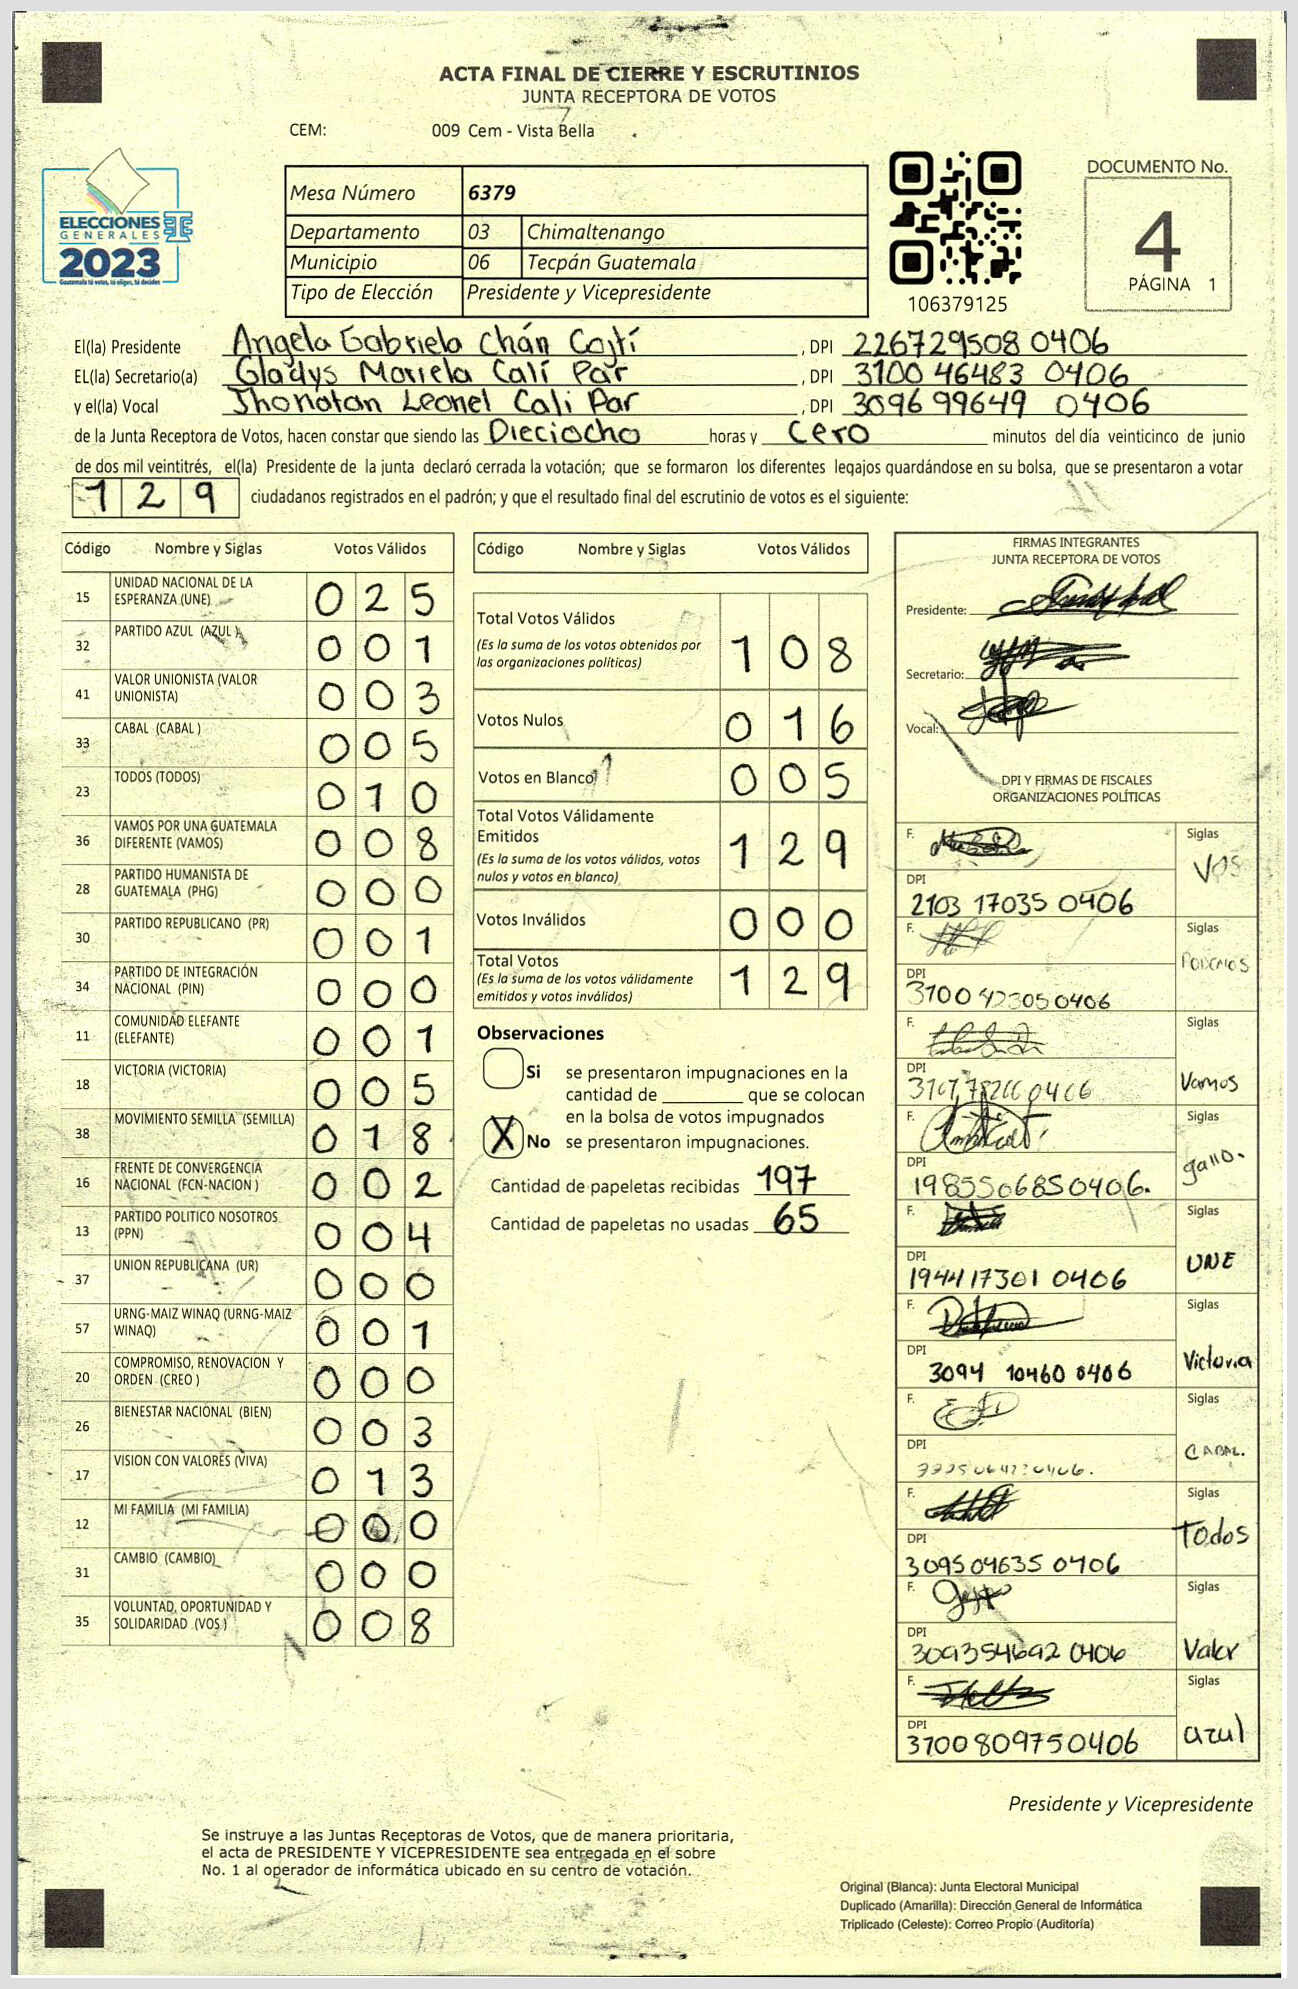 ACTA FINAL DE CIERRE Y ESCRUTINIOS
JUNTA RECEPTORA DE VOTOS
CEM: 009 Cem - Vista Bella
ELECCIONES
GENERALES
2023
Guatemala tú votas, tú eliges, tú decides
TSE
Mesa Número 6379
Departamento 03 Chimaltenango
Municipio 06 Tecpán Guatemala
Tipo de Elección Presidente y Vicepresidente
106379125
DOCUMENTO No.
4
PÁGINA 1
El(la) Presidente Angela Gabriela Chán Cojtí, DPI 226729508 0406
EL(la) Secretario(a) Gladys Mariela Calí Par, DPI 3100 46483 0406
y el(la) Vocal Jhonatan Leonel Cali Par, DPI 3096 99649 0406
de la Junta Receptora de Votos, hacen constar que siendo las Dieciocho horas y cero minutos del día veinticinco de junio
de dos mil veintitrés, el(la) Presidente de la junta declaró cerrada la votación; que se formaron los diferentes legajos guardándose en su bolsa, que se presentaron a votar
129 ciudadanos registrados en el padrón; y que el resultado final del escrutinio de votos es el siguiente:
Código Nombre y Siglas Votos Válidos
15 UNIDAD NACIONAL DE LA ESPERANZA (UNE) 025
32 PARTIDO AZUL (AZUL ) 001
41 VALOR UNIONISTA (VALOR UNIONISTA) 003
33 CABAL (CABAL ) 005
23 TODOS (TODOS) 010
36 VAMOS POR UNA GUATEMALA DIFERENTE (VAMOS) 008
28 PARTIDO HUMANISTA DE GUATEMALA (PHG) 000
30 PARTIDO REPUBLICANO (PR) 001
34 PARTIDO DE INTEGRACIÓN NACIONAL (PIN) 000
11 COMUNIDAD ELEFANTE (ELEFANTE) 001
18 VICTORIA (VICTORIA) 005
38 MOVIMIENTO SEMILLA (SEMILLA) 018
16 FRENTE DE CONVERGENCIA NACIONAL (FCN-NACION ) 002
13 PARTIDO POLITICO NOSOTROS (PPN) 004
37 UNION REPUBLICANA (UR) 000
57 URNG-MAIZ WINAQ (URNG-MAIZ WINAQ) 001
20 COMPROMISO, RENOVACION Y ORDEN (CREO ) 000
26 BIENESTAR NACIONAL (BIEN) 003
17 VISION CON VALORES (VIVA) 013
12 MI FAMILIA (MI FAMILIA) 000
31 CAMBIO (CAMBIO) 000
35 VOLUNTAD, OPORTUNIDAD Y SOLIDARIDAD (VOS ) 008
Código Nombre y Siglas Votos Válidos
Total Votos Válidos
(Es la suma de los votos obtenidos por
las organizaciones políticas) 108
Votos Nulos 016
Votos en Blanco 005
Total Votos Válidamente
Emitidos
(Es la suma de los votos válidos, votos
nulos y votos en blanco) 129
Votos Inválidos 000
Total Votos
(Es la suma de los votos válidamente
emitidos y votos inválidos) 129
Observaciones
Si se presentaron impugnaciones en la
cantidad de ________ que se colocan
en la bolsa de votos impugnados
X No se presentaron impugnaciones.
Cantidad de papeletas recibidas 197
Cantidad de papeletas no usadas 65
FIRMAS INTEGRANTES
JUNTA RECEPTORA DE VOTOS
Presidente:
Secretario:
Vocal:
DPI Y FIRMAS DE FISCALES
ORGANIZACIONES POLÍTICAS
F. Siglas VOS
DPI 2103 17035 0406
F. Siglas PODEMOS
DPI 3100 423050406
F. Siglas Vamos
DPI
F. Siglas gallo.
DPI 1985506850406.
F. Siglas UNE
DPI 194417301 0406
F. Siglas Victoria
DPI 3094 10460 0406
F. Siglas CABAL.
DPI
F. Siglas Todos
DPI 309504635 0406
F. Siglas Valor
DPI 309354692 0406
F. Siglas azul
DPI 3100809750406
Presidente y Vicepresidente
Se instruye a las Juntas Receptoras de Votos, que de manera prioritaria,
el acta de PRESIDENTE Y VICEPRESIDENTE sea entregada en el sobre
No. 1 al operador de informática ubicado en su centro de votación.
Original (Blanca): Junta Electoral Municipal
Duplicado (Amarilla): Dirección General de Informática
Triplicado (Celeste): Correo Propio (Auditoría)